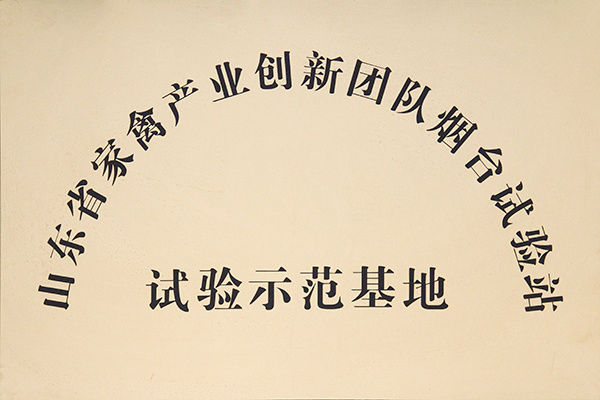 山东省家禽产业创新团队烟台试验站
试验示范基地